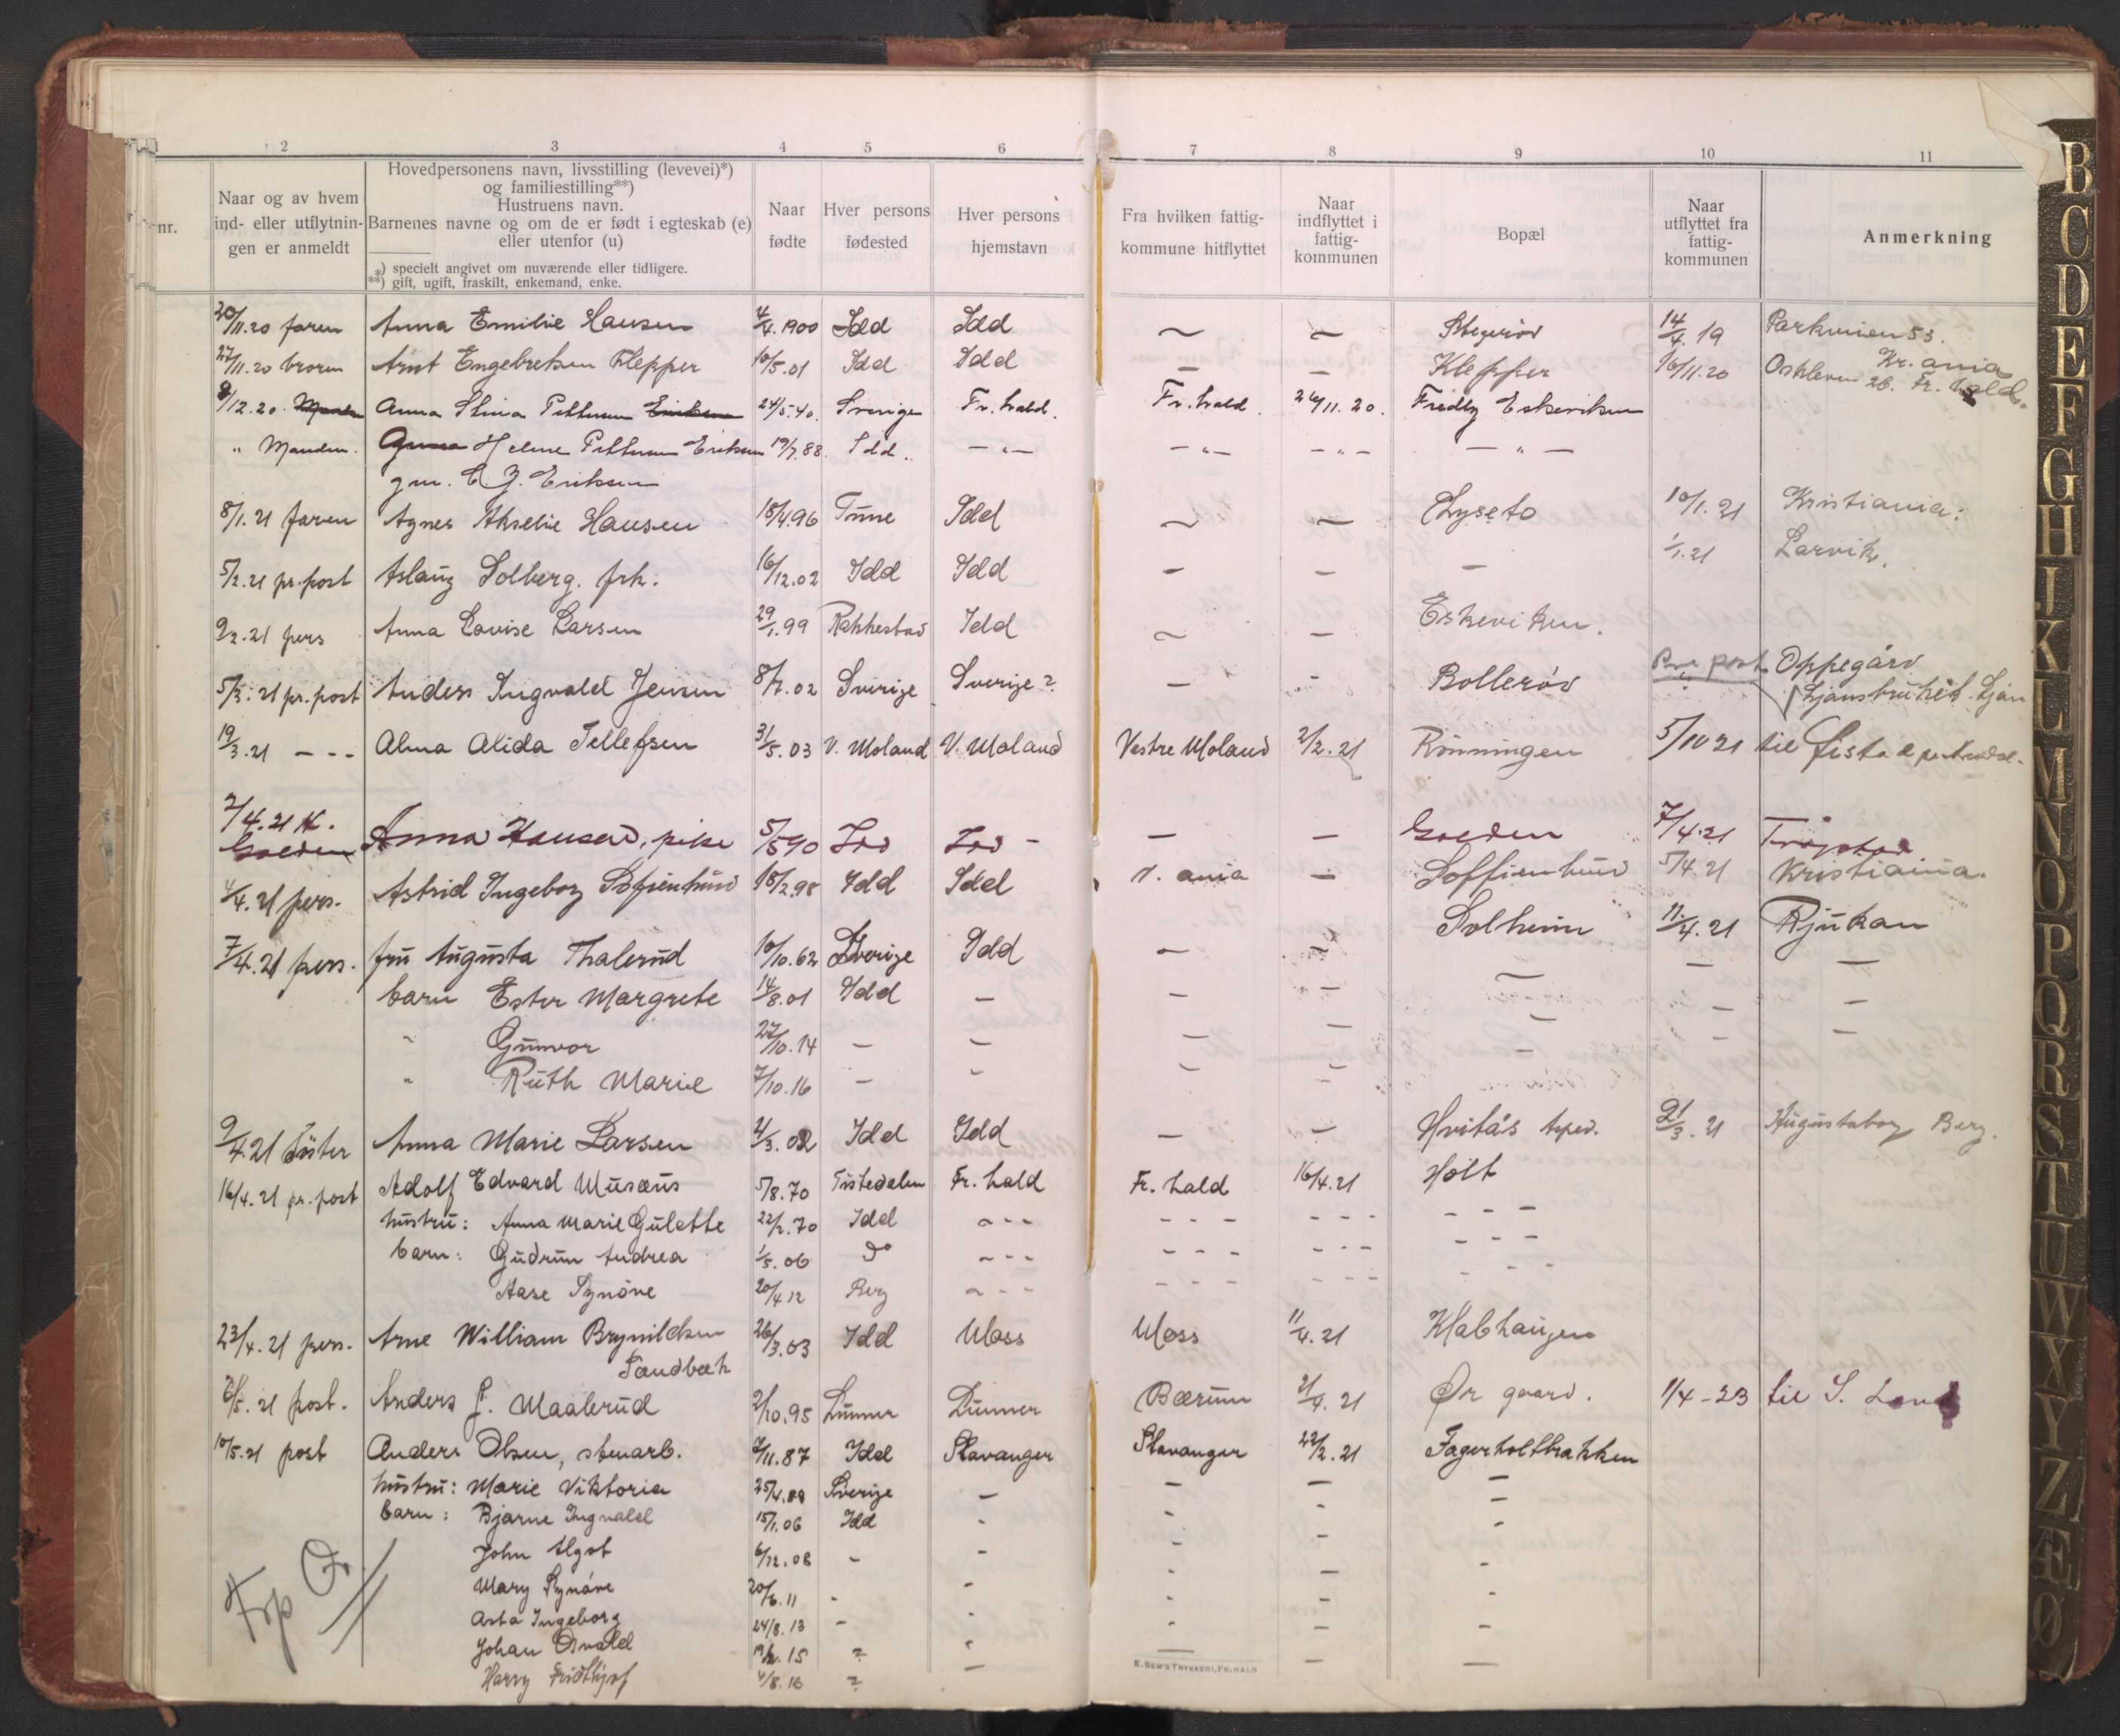 1 2 3 4 5 6 7 8 9 10 11
nr.
Naar og av hvem ind- eller utflytnin- gen er anmeldt
Hovedpersonens navn, livsstilling (levevei)*)
og familiestilling**)
Hustruens navn.
Barnenes navne og om de er født i egteskab (e)
eller utenfor (u)
*) specielt angivet om nuværende eller tidligere.
**) gift, ugift, fraskilt, enkemand, enke.
Naar fødte
Hver persons fødested
Hver persons hjemstavn
Fra hvilken fattig- kommune hitflyttet
Naar indflyttet i fattig- kommunen
Bopæl
Naar utflyttet fra fattig- kommunen
Anmerkning
20/11.20 faren Anna Emilie Hansen 4/4.1900 Idd Idd ~ ~ Stegeröd 14/4 19 Parkveien 53. Kr.ania
27/11.20 broren Arnt Engebretsen Klepper 10/5.01 Idd Idd – – Klepper 16/11.20 Oskleven 26. Fr.hald.
8/12.20. Anna Stina Pettersen Eriksen 24/5.40. Sverige Fr.hald. Fr.hald. 24/11.20. Fredly Eskeviken
" Manden. Anna Helene Pettersen Eriksen 19/7.88. Idd. – " – – " – – " – – " –
gm. C J. Eriksen
8/1.21 faren Agnes Akselie Hansen 18/4.96 Tune Idd ~ ~ Lyseto 10/1.21 Kristiania.
5/2.21 pr.post Aslaug Solberg. frk. 16/12.02 Idd Idd – – – 1/1.21 Larvik.
9/2.21 pers Anna Lovise Larsen 29/1.99 Rakkestad Idd ~ – Eskeviken.
5/3.21 pr.post Anders Ingvald Jensen 8/7.02 Sverige Sverige? – – Bolleröd Pr. post Oppegård
Ljansbruket. Ljan
19/3.21 – – – Alma Alida Tellefsen 31/5.03 V. Moland V. Moland Vestre Moland 2/2.21 Rönningen 5/10 21 til Østa pr. Arendal.
7/4.21 H.
Goeden Anna Hansen, pike 5/5 90 Idd Idd – – – Goeden 7/4.21 Trøgstad
4/4.21 pers. Astrid Ingeborg Sofienlund 18/2.98 Idd Idd K.ania – Soffienlund 5/4.21 Kristiania.
7/4.21 pers. fru Augusta Thalerud 10/10.62 Sverige Idd – – Solheim 11/4.21 Rjukan
barn Ester Margrete 14/8.01 Idd – – – – – –
" Gunvor 27/10.14 – – – – – – –
" Ruth Marie 7/10.16 – – – – –
9/4.21 söster Anna Marie Larsen 4/3.02 Idd Idd – – Hvitås 21/3.21 Augustaborg Berg.
16/4.21 pr.post Adolf Edvard Musæus 5/8.70 Tistedalen Fr.hald Fr.hald 16/4.21 Holt
hustru: Anna Marie Gulette 22/2.70 Idd – – – – – – – – – – – –
barn: Gudrun Andrea 1/5.06 do – – – – – – – – – – – –
Aase Synöve 20/4 12 Berg – – – – – – – – – – – –
23/4.21 pers. Arne William Brynildsen 26/3.03 Idd Moss Moss 11/4.21 Klabhaugen
Sandbæk
6/5.21 post. Anders J. Maalerud 2/10.95 Lunner Lunner Bærum 21/4.21 Ør gaard. 1/4-23 til S. Land
10/5.21 post Anders Olsen, stenarb. 7/11.87 Idd Stavanger Stavanger 22/2.21 Fagerholtbakken
hustru: Marie Viktoria 25/4.88 Sverige – – – –
barn: Bjarne Ingvald 15/1.06 Idd – – – –
John Algot 6/12.08 – – – – –
Mary Synöve 20/6.11 – – – – –
Asta Ingeborg 24/8.13 – – – – –
Johan Osvald 19/2.15 ? – – – –
Harry Fridthjof 4/8.16 ? – – – –
E. SEM'S TRYKKERI, FR.HALD
B C D E F G H I J K L M N O P Q R S T U W X Y Z Æ Ø